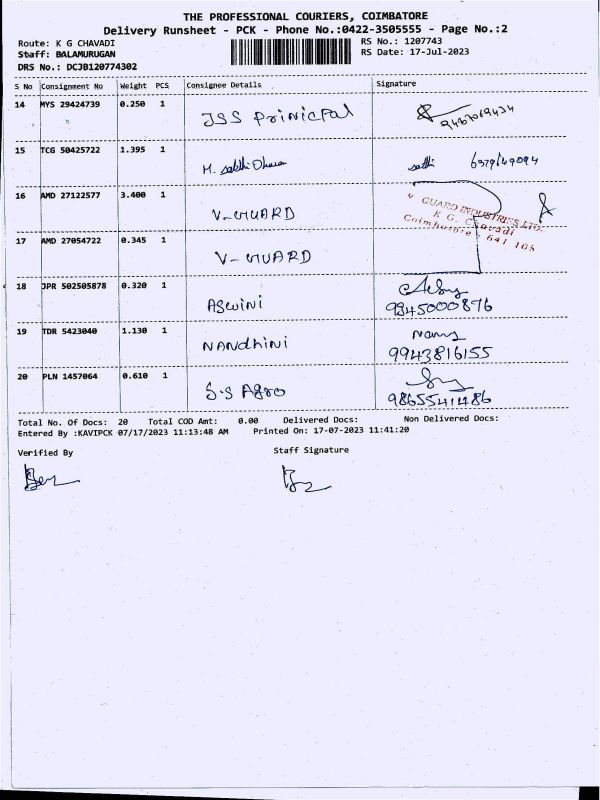 THE PROFESSIONAL COURIERS, COIMBATORE
Delivery Runsheet - PCK - Phone No.:0422-3505555 - Page No.:2
Route: K G CHAVADI RS No.: 1207743
Staff: BALAMURUGAN RS Date: 17-Jul-2023
DRS No.: DCJB120774302
S No Consignment No Weight PCS Consignee Details Signature
14 MYS 29424739 0.250 1 JSS PriNicPal
15 TCG 50425722 1.395 1 M. Sakthi Dharan sakthi
16 AMD 27122577 3.400 1 V-GUARD
V GUARD INDUSTRIES LTD.
K G. Chavadi
Coimbatore - 641 105
17 AMD 27054722 0.345 1 V-GUARD
18 JPR 502505878 0.320 1 Aswini 9845000876
19 TDR 5423040 1.130 1 NANdhini 9943816155
20 PLN 1457064 0.610 1 S.S Agro 9865541486
Total No. Of Docs: 20 Total COD Amt: 0.00 Delivered Docs: Non Delivered Docs:
Entered By :KAVIPCK 07/17/2023 11:13:48 AM Printed On: 17-07-2023 11:41:20
Verified By Staff Signature